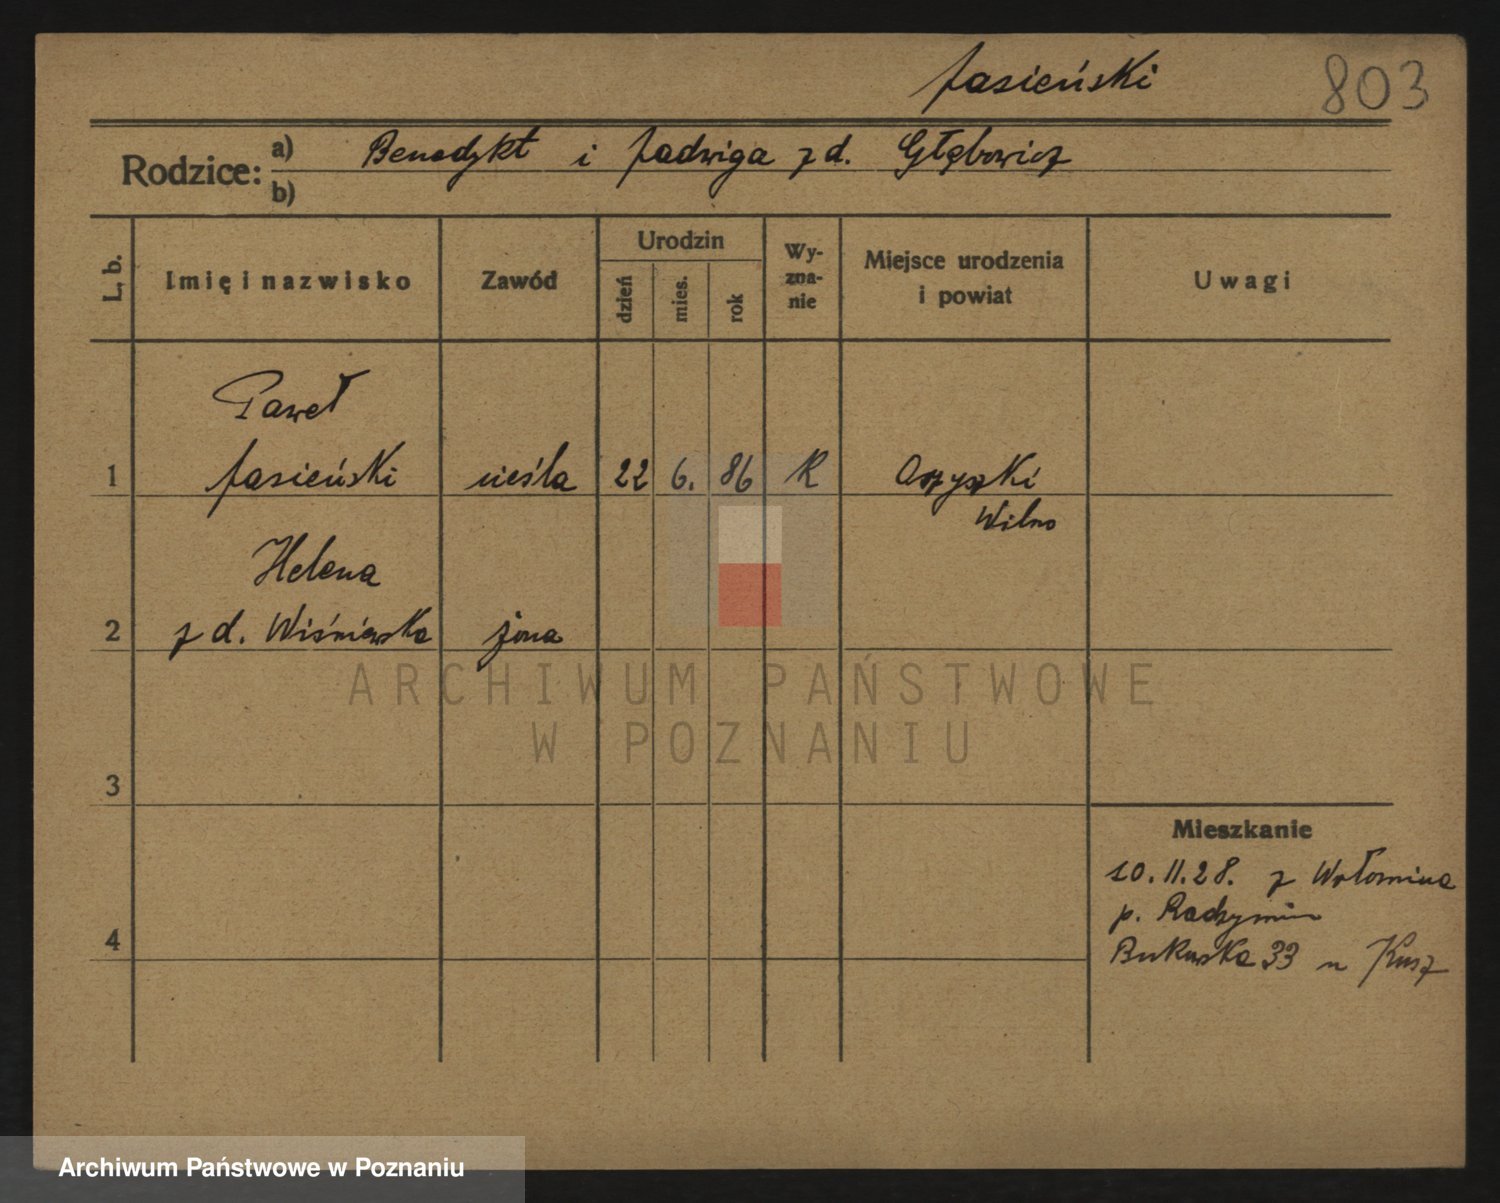 Jasieński 803
Rodzice: a) Benedykt i Jadwiga z d. Głębowicz
b)
L. b. Imię i nazwisko Zawód Urodzin dzień mies. rok Wy-zna-nie Miejsce urodzenia i powiat Uwagi
Paweł
1 Jasieński cieśla 22 6. 86 R
Wilno
Helena
2 z d. Wiśniewska żona
ARCHIWUM PAŃSTWOWE
W POZNANIU
3
Mieszkanie
10.11.28. z Wołomina
4 p. Radzymin
Bukowska 33 u
Archiwum Państwowe w Poznaniu